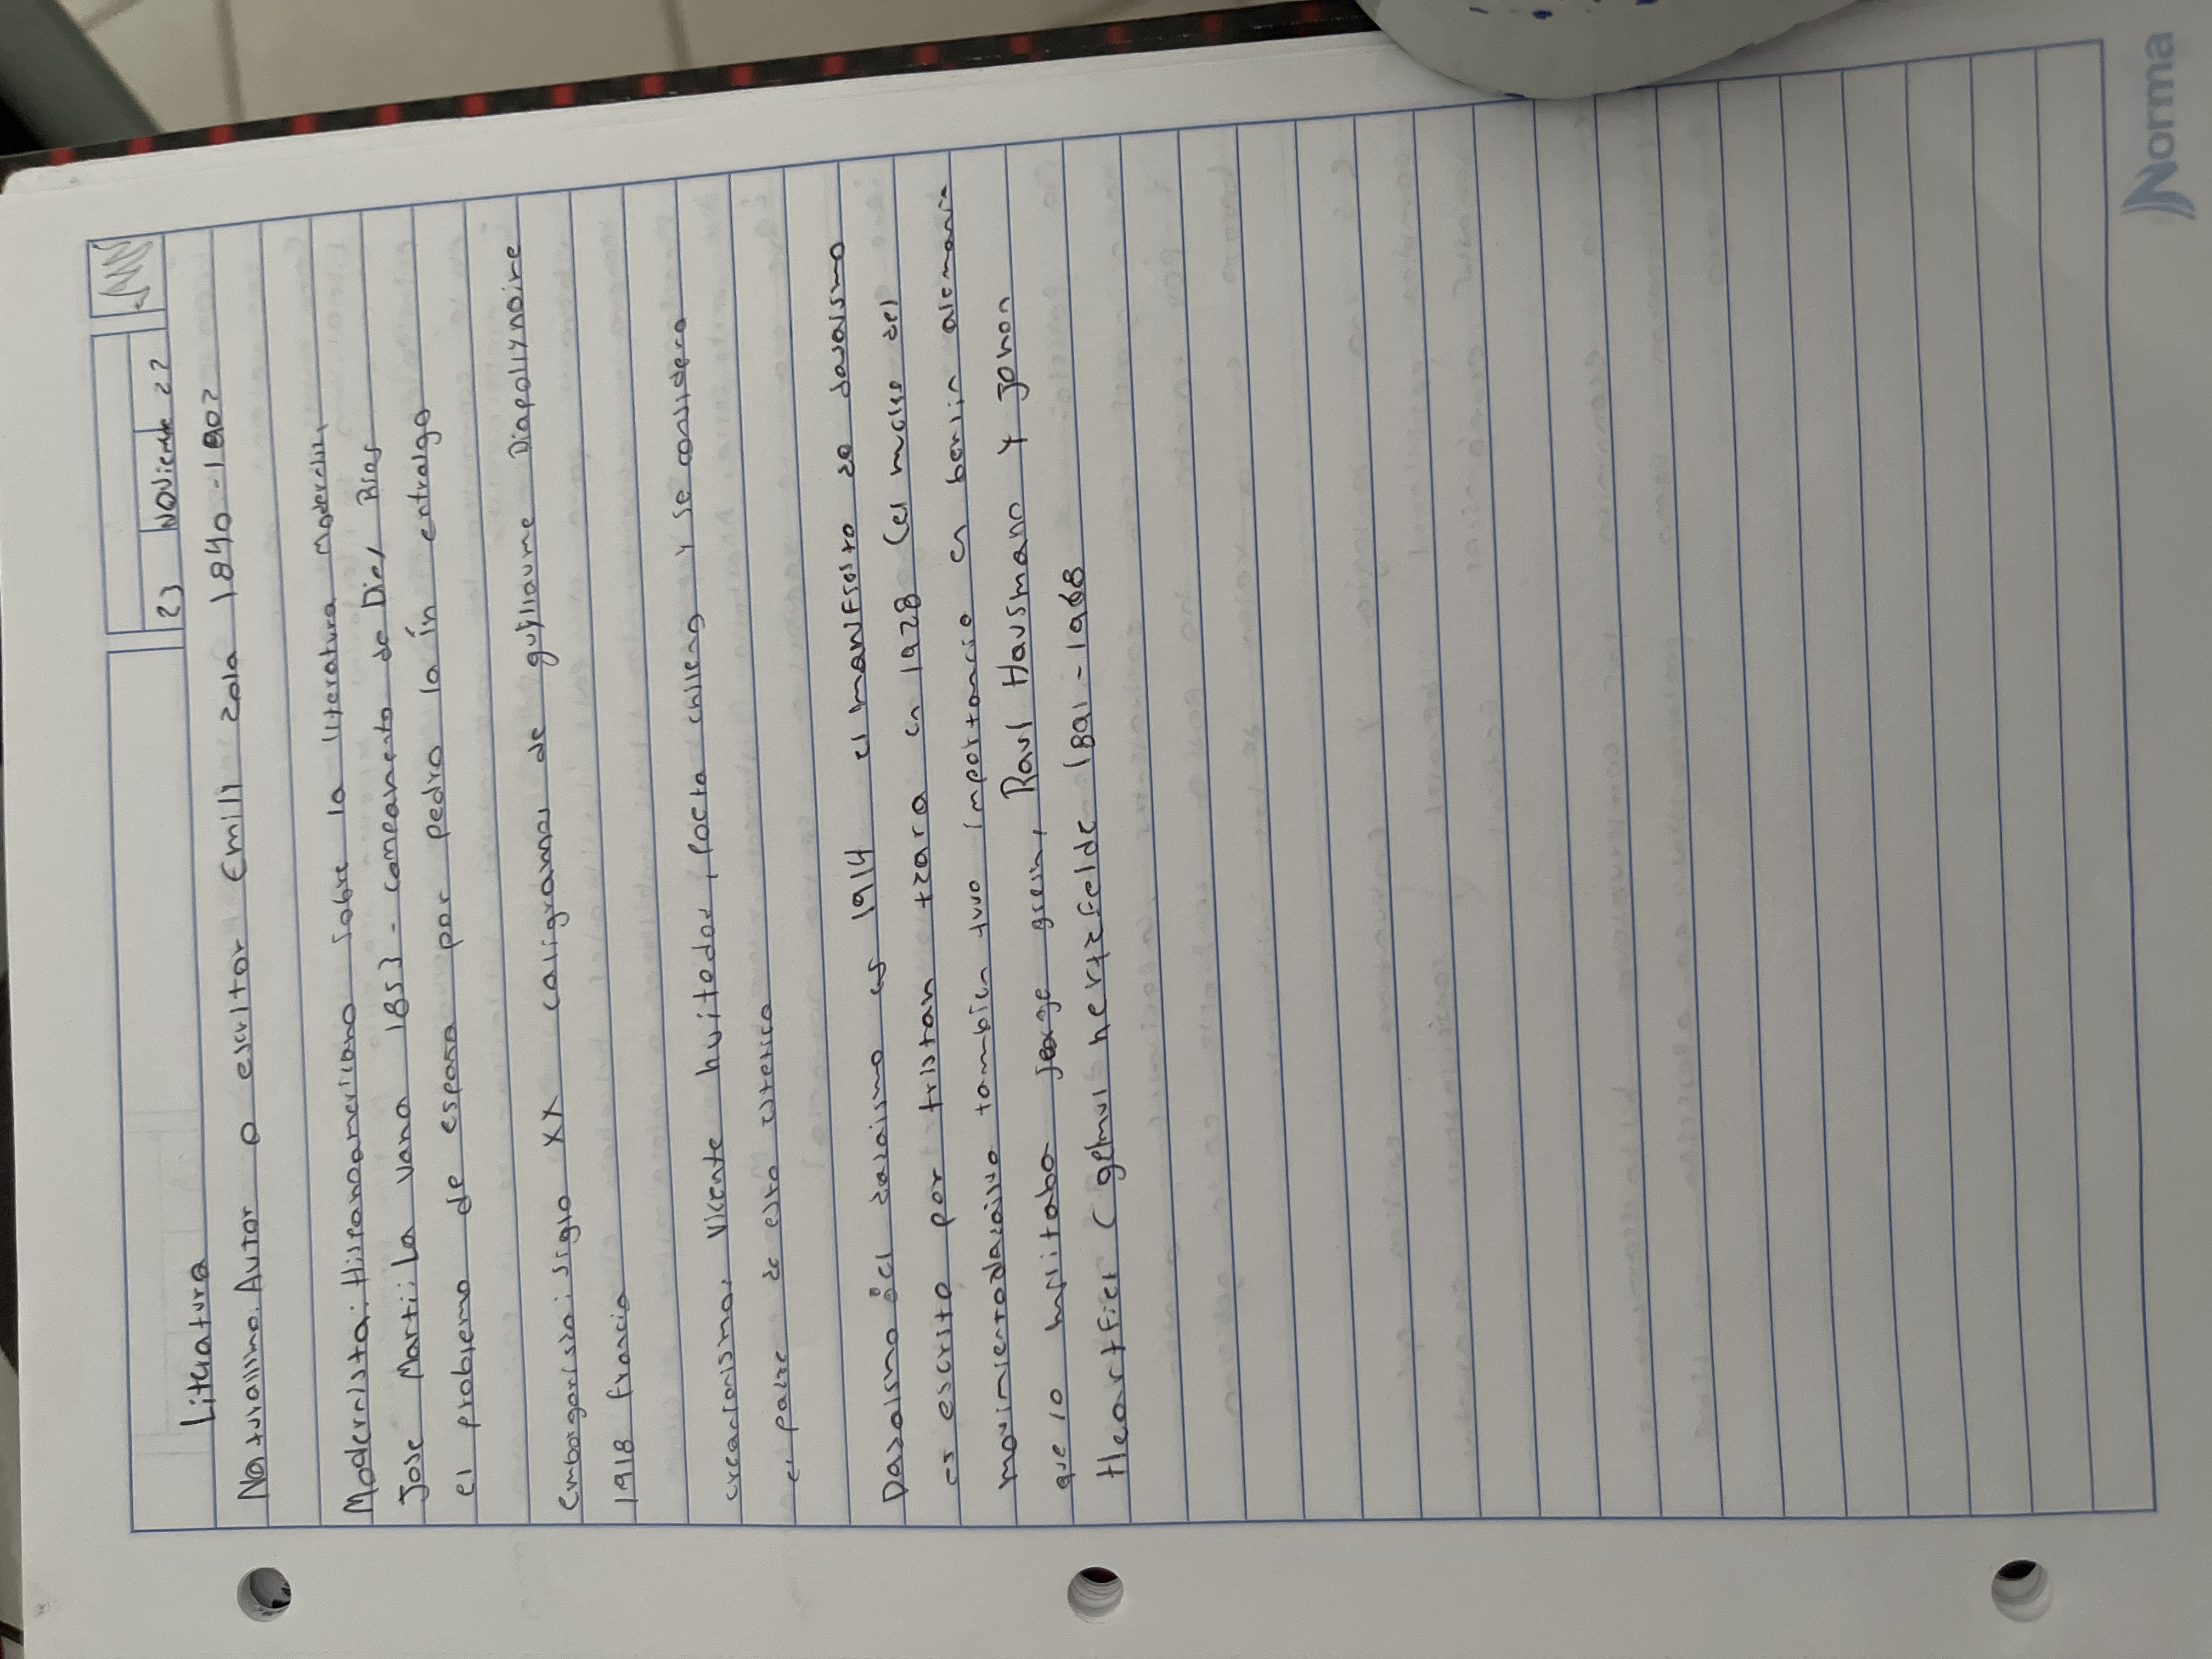 23 Noviembre 22
Literatura
Naturalismo. Autor o escritor Emily zola 1840 - 1902
Modernista: Hispanoamericano sobre la literatura
Jose Marti: La vana 1853 - campamento de Dios Rios
el problemo de espana por pedro la ín entralgo
siglo XX caligramas de guyllaume Diapollynaire
1918 francia
creacionismo. Vicente huitedor, poeta chileno y se considera
el padre de esta estetica
Dadaismo el dadaismo es 1914 el manifiesto de dadaismo
es escrito por tristan tzara en 1928 (el del
movimiento tambien tuvo importancia en berlin alemania
que lo militaba Raul Hausmano y Jonon
Heartfiel ( gelmul hertzfelde 1891 - 1968
Norma